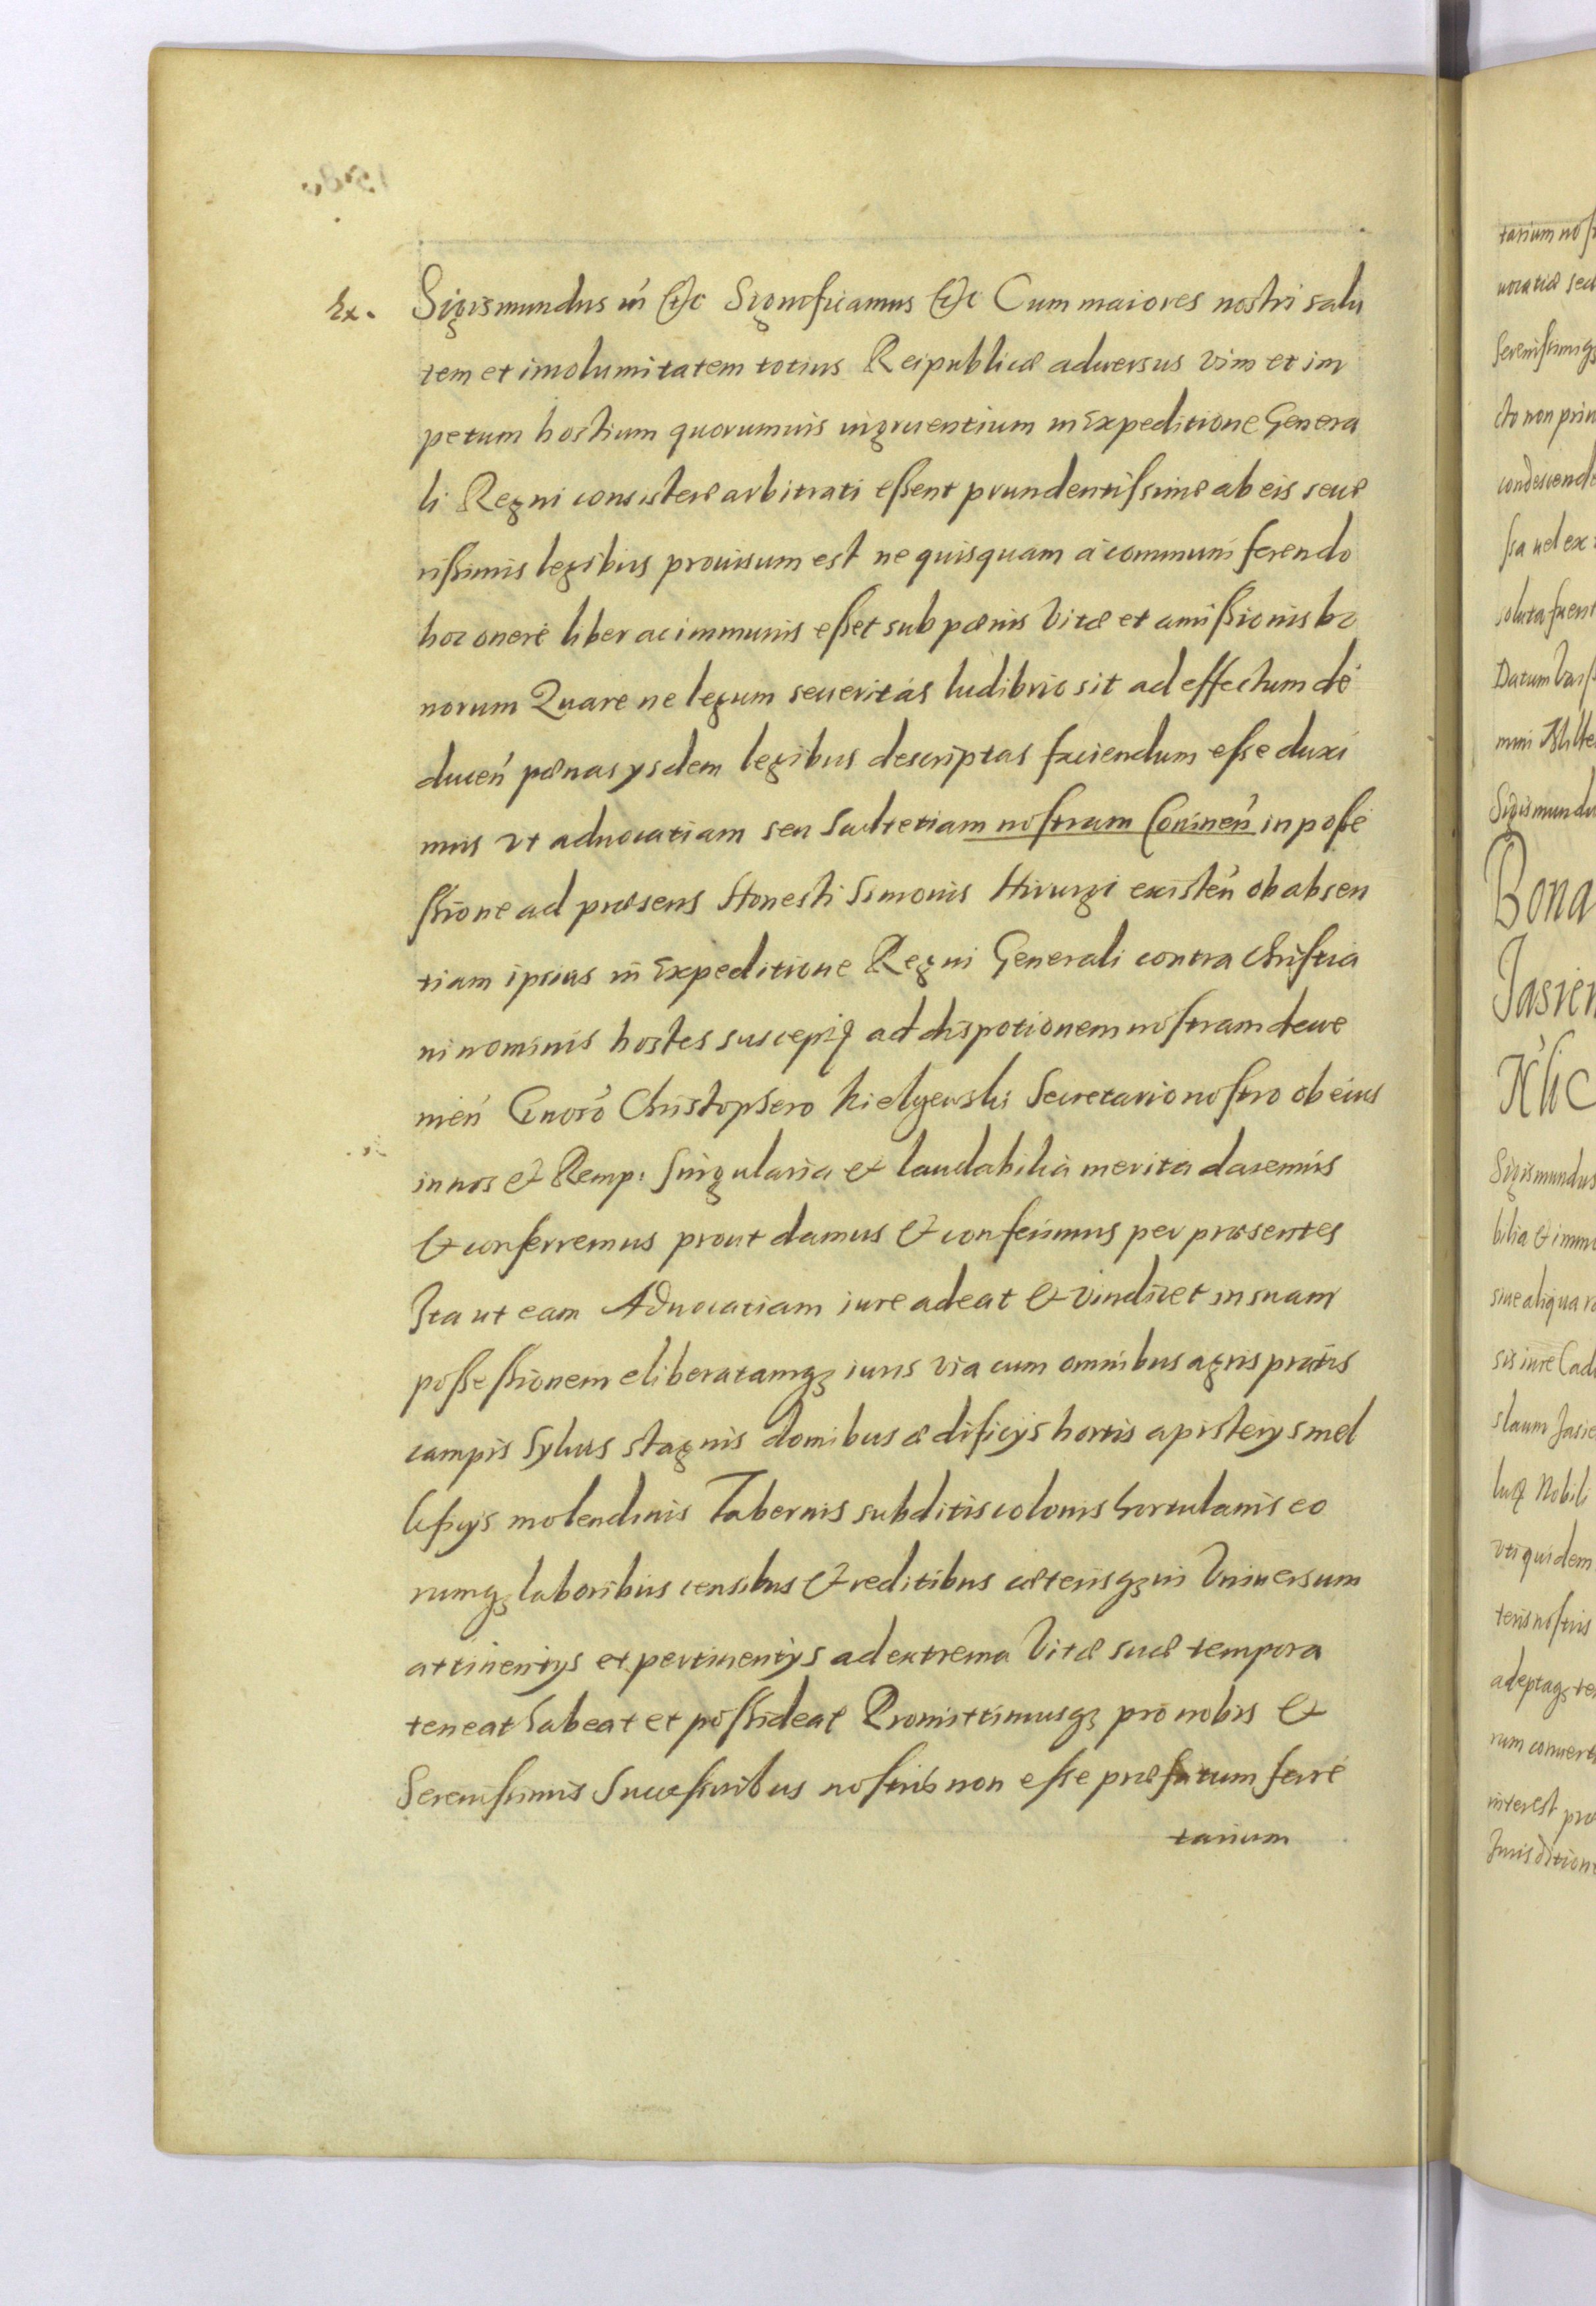 Ex. Sigismundus in &c Significamus &c Cum maiores nostri salu
tem et imolumitatem totius Reipublicæ aduersus vim et im
petum hostium quorumuis ingruentium in Expeditione Genera
li Regni consistere arbitrati essent prundentissime ab eis seue
rissimis legibus prouisum est ne quisquam a communi ferendo
hoc onere liber ac immunis esset sub pœnis vitæ et amissionis bo
norum Quare ne legum seueritas ludibrio sit ad effectum de
ducen pœnas ysdem legibus descriptas faciendum esse duxi
mus vt aduocatiam seu Scultetiam nostram Coninen in posse
ssione ad præsens Honesti Simonis Hirurgi existen ob absen
tiam ipsius in Expeditione Regni Generali contra Christia
ni nominis hostes suscepta ad dispotionem nostram deue
nien Gnoro Christophero Kielgewski Secretario nostro ob eius
in nos & Remp. singularia & laudabilia merita daremus
& conferremus prout damus & conferimus per præsentes
Ita ut eam Aduocatiam iure adeat & vindicet in suam
possessionem eliberatamq3 iuris via cum omnibus agris pratis
campis syluis stagnis domibus ædificijs hortis apisterys mel
lificijs molendinis Tabernis subditis colonis hortulanis eo
rumq3 laboribus censibus & reditibus cæterisq3 in vniuersum
attinentijs et pertinentijs ad extrema vitæ suæ tempora
teneat habeat et possideat Promittimusq3 pro nobis &
Serenissimis Successoribus nostris non esse præfatum secre
tarium
tarium nost
uocatiæ
Serenissimiq3
cto non prin
condescende
ssa uel ex
soluta fuerit
Datum
mini Mille
Sigismundu
Bona
Jasien
Klic
Sigismundus
bilia & immo
siue aliqua
sis iure Cad
slaum Jasie
Nobili
vti quidem
teris nostris
adeptaq3 te
rum conuert
interest præ
Jurisditione